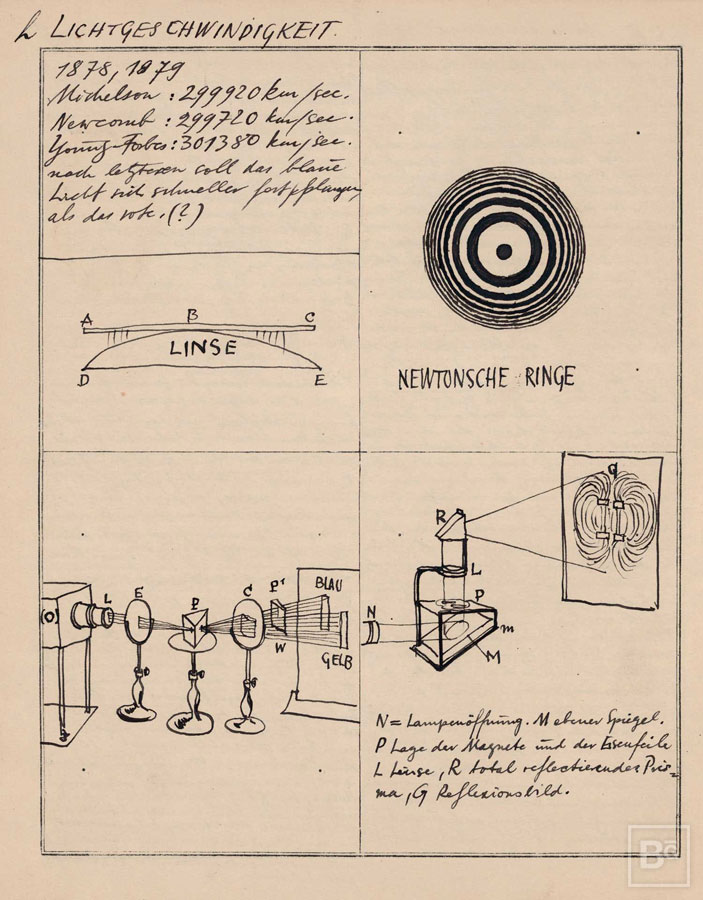 h LICHTGESCHWINDIGKEIT.
1878, 1879
Michelson : 299920 km/sec.
Newcomb : 299720 km/sec.
Young-Forbes : 301380 km/sec.
nach letzteren soll das blaue
Licht sich schneller fortpflanzen
als das rote. (?)
NEWTONSCHE RINGE
A B C
LINSE
D E
L E P C P' BLAU
W GELB
N R L P m M G
N = Lampenöffnung. M ebener Spiegel.
P Lage der Magnete und der Eisenfeile
L Linse, R total reflectierendes Pris=
ma, G Reflexionsbild.
BC